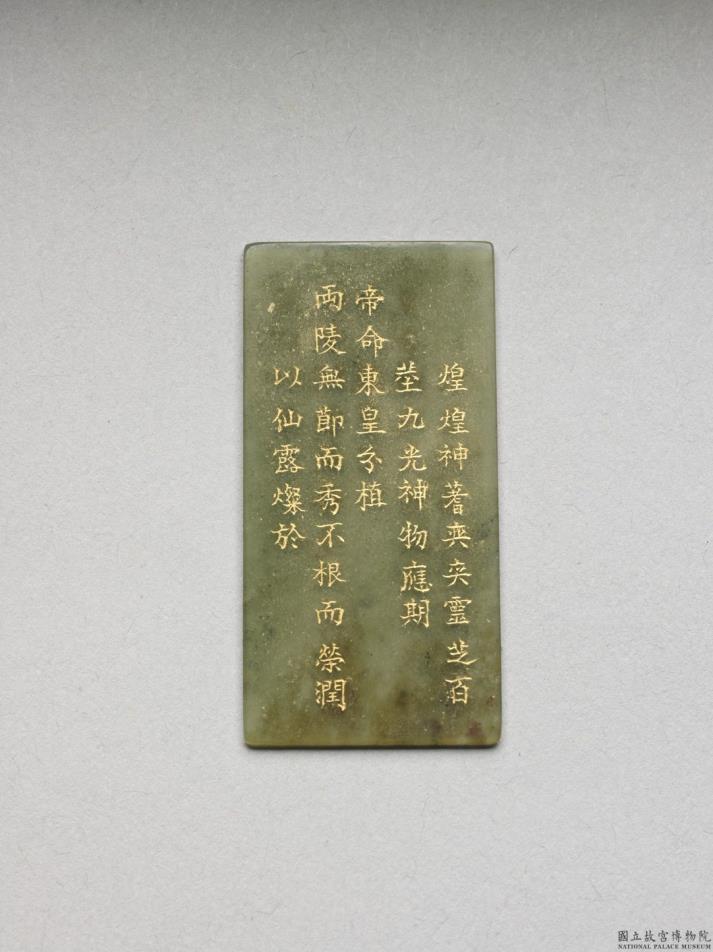 煌煌神蓍奕奕靈芝百
莖九光神物應期
帝命東皇分植
兩陵無節而秀不根而榮潤
以仙露燦於
國立故宮博物院
NATIONAL PALACE MUSEUM